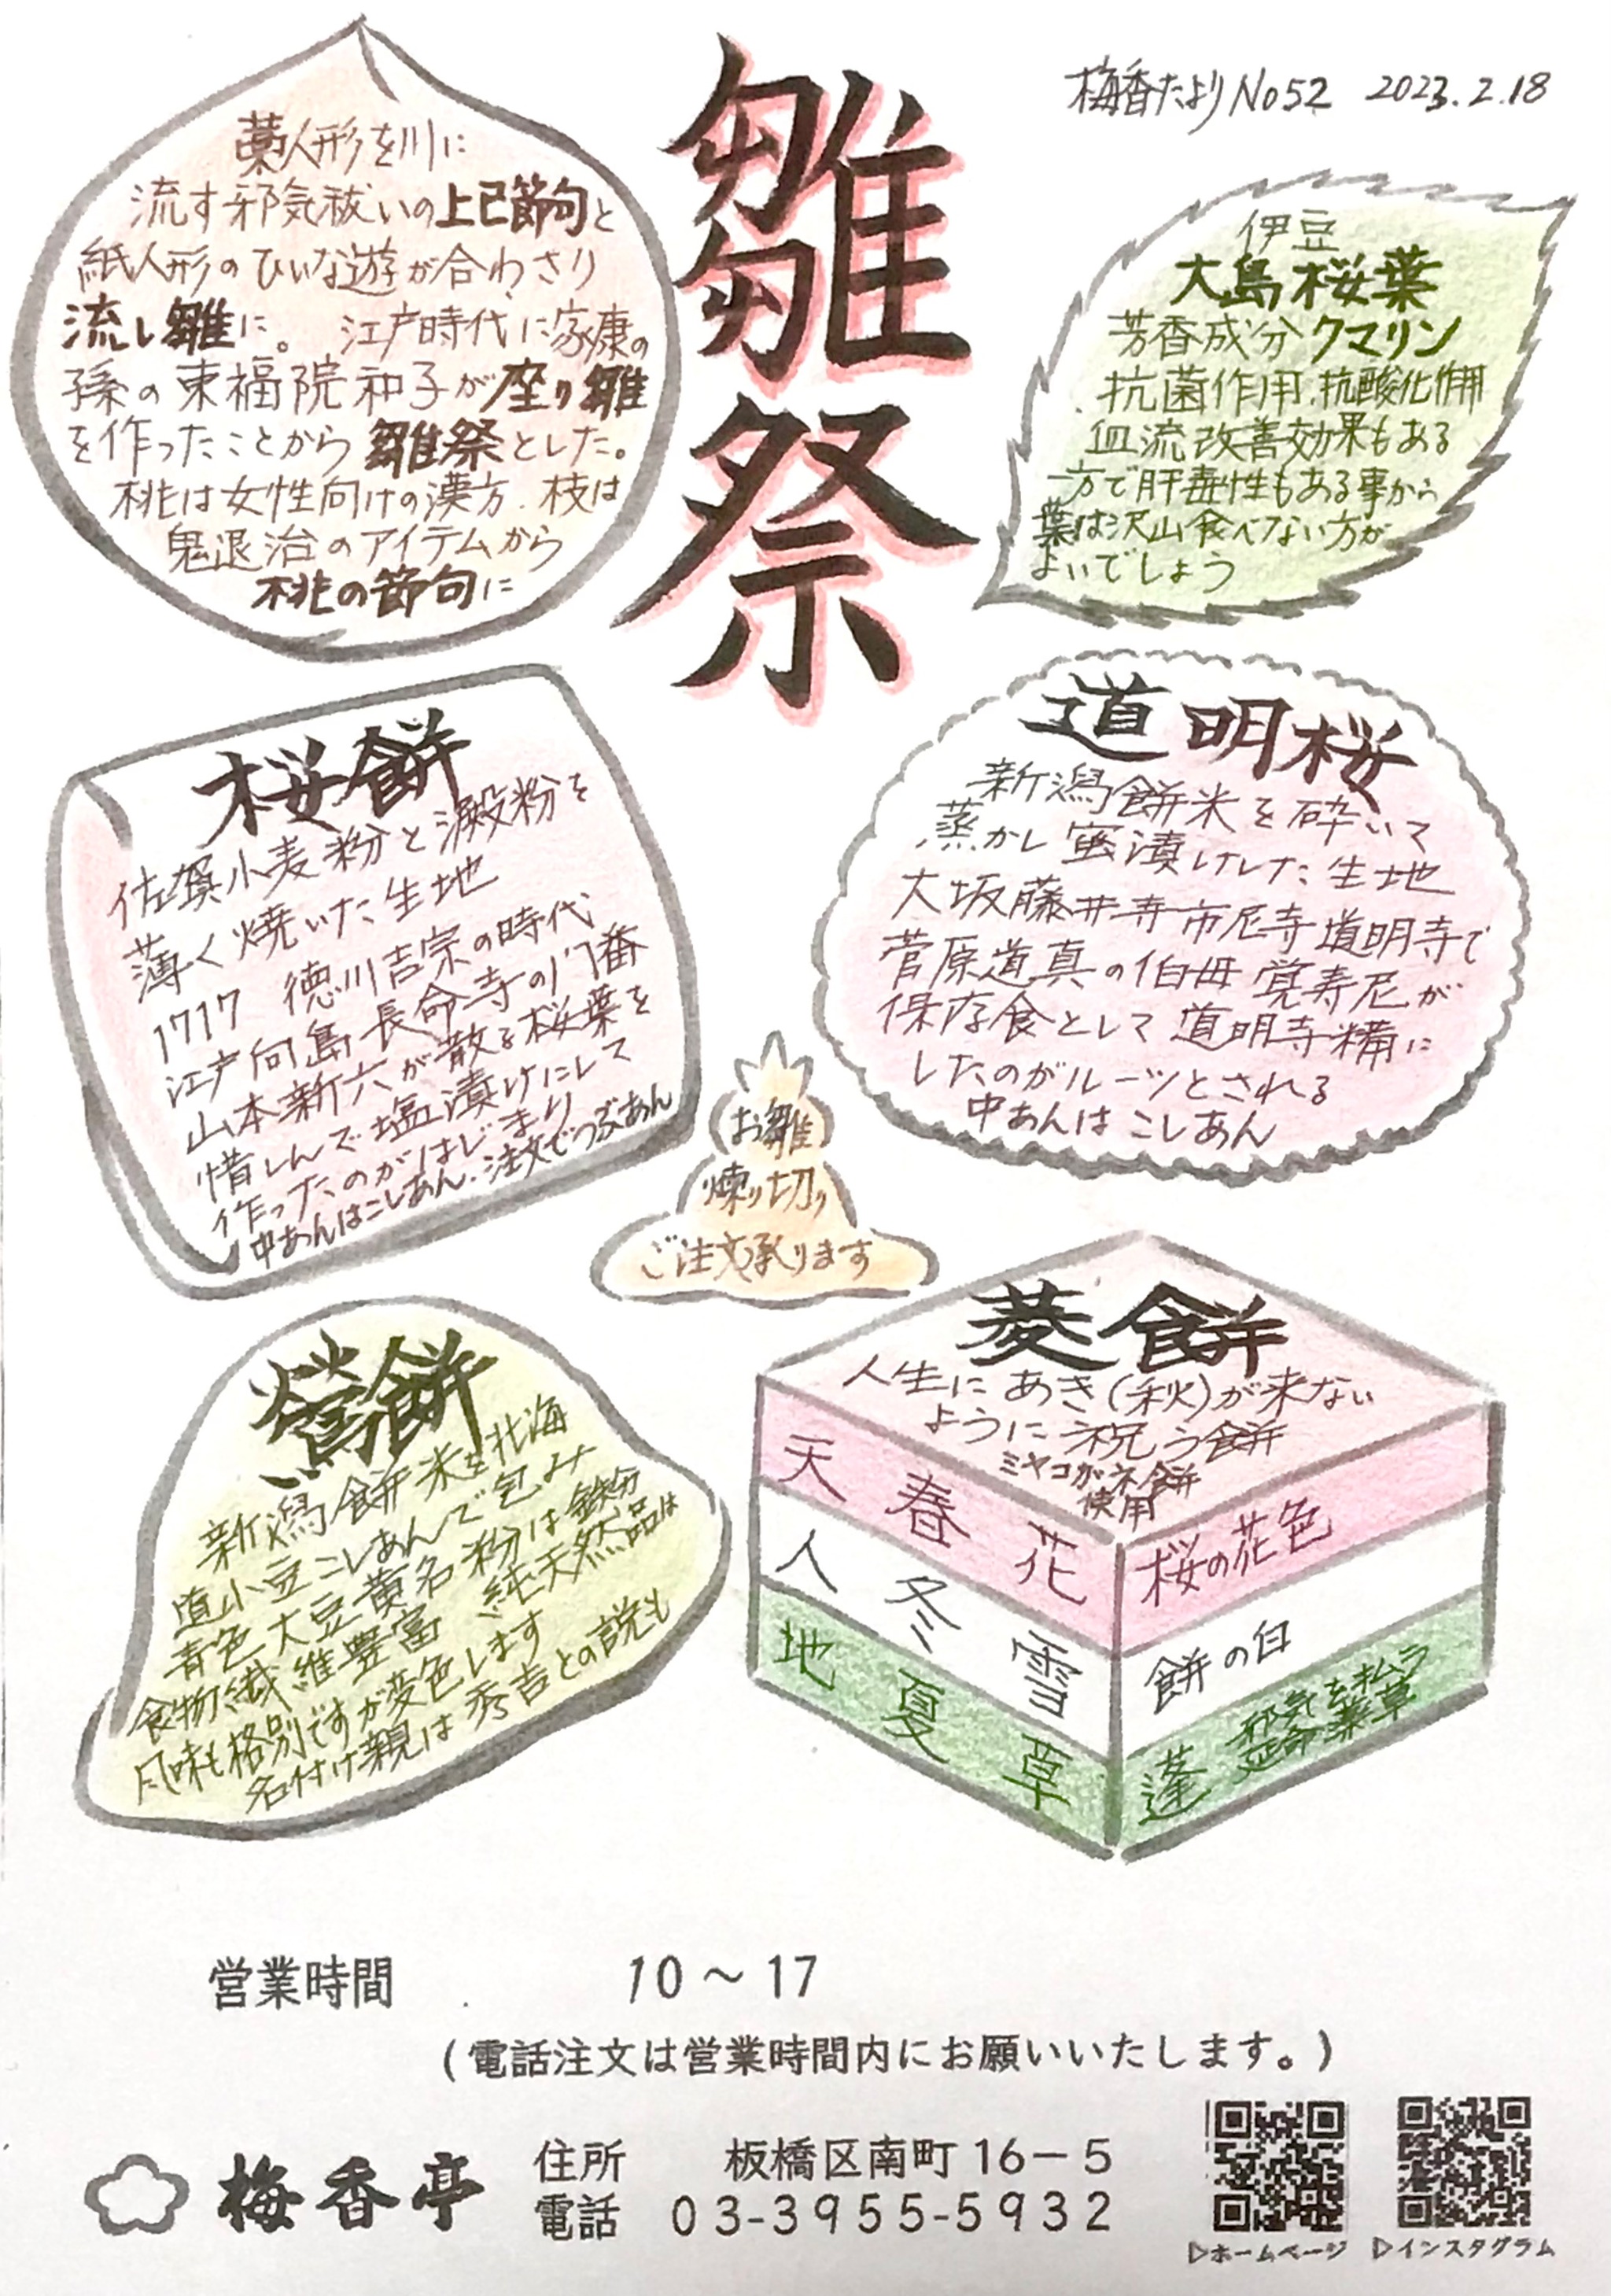 梅香たより No52 2023.2.18
雛祭
藁人形を川に
流す邪気祓いの上巳節句と
紙人形のひいな遊が合わさり
流し雛に。江戸時代に家康の
孫の東福院和子が座り雛
を作ったことから雛祭とした。
桃は女性向けの漢方.枝は
鬼退治のアイテムから
桃の節句に
伊豆
大島桜葉
芳香成分クマリン
抗菌作用.抗酸化作用
血流改善効果もある
一方で肝毒性もある事から
葉は沢山食べない方が
よいでしょう
桜餅
佐賀小麦粉と澱粉を
薄く焼いた生地
1717 徳川吉宗の時代
江戸向島長命寺の門番
山本新六が散る桜葉を
惜しんで塩漬けにして
作ったのがはじまり
中あんはこしあん.注文でつぶあん
道明桜
新潟餅米を砕いて
蒸かし蜜漬けした生地
大坂藤井寺市尼寺道明寺で
菅原道真の伯母覚寿尼が
保存食として道明寺糒に
したのがルーツとされる
中あんはこしあん
お雛
煉り切り
ご注文承ります
鶯餅
新潟餅米を北海
道小豆こしあんで包み
青色大豆黄名粉は鉄分
食物繊維豊富 純天然品は
風味も格別ですが変色します
名付け親は秀吉との説も
菱餅
人生にあき(秋)が来ない
ように祝う餅
ミヤコガネ餅
使用
天 春 花
人 冬 雪
地 夏 草
桜の花色
餅の白
蓬 邪気を払う
延命薬草
営業時間 10～17
(電話注文は営業時間内にお願いいたします。)
梅香亭
住所 板橋区南町16－5
電話 03-3955-5932
▷ホームページ ▷インスタグラム